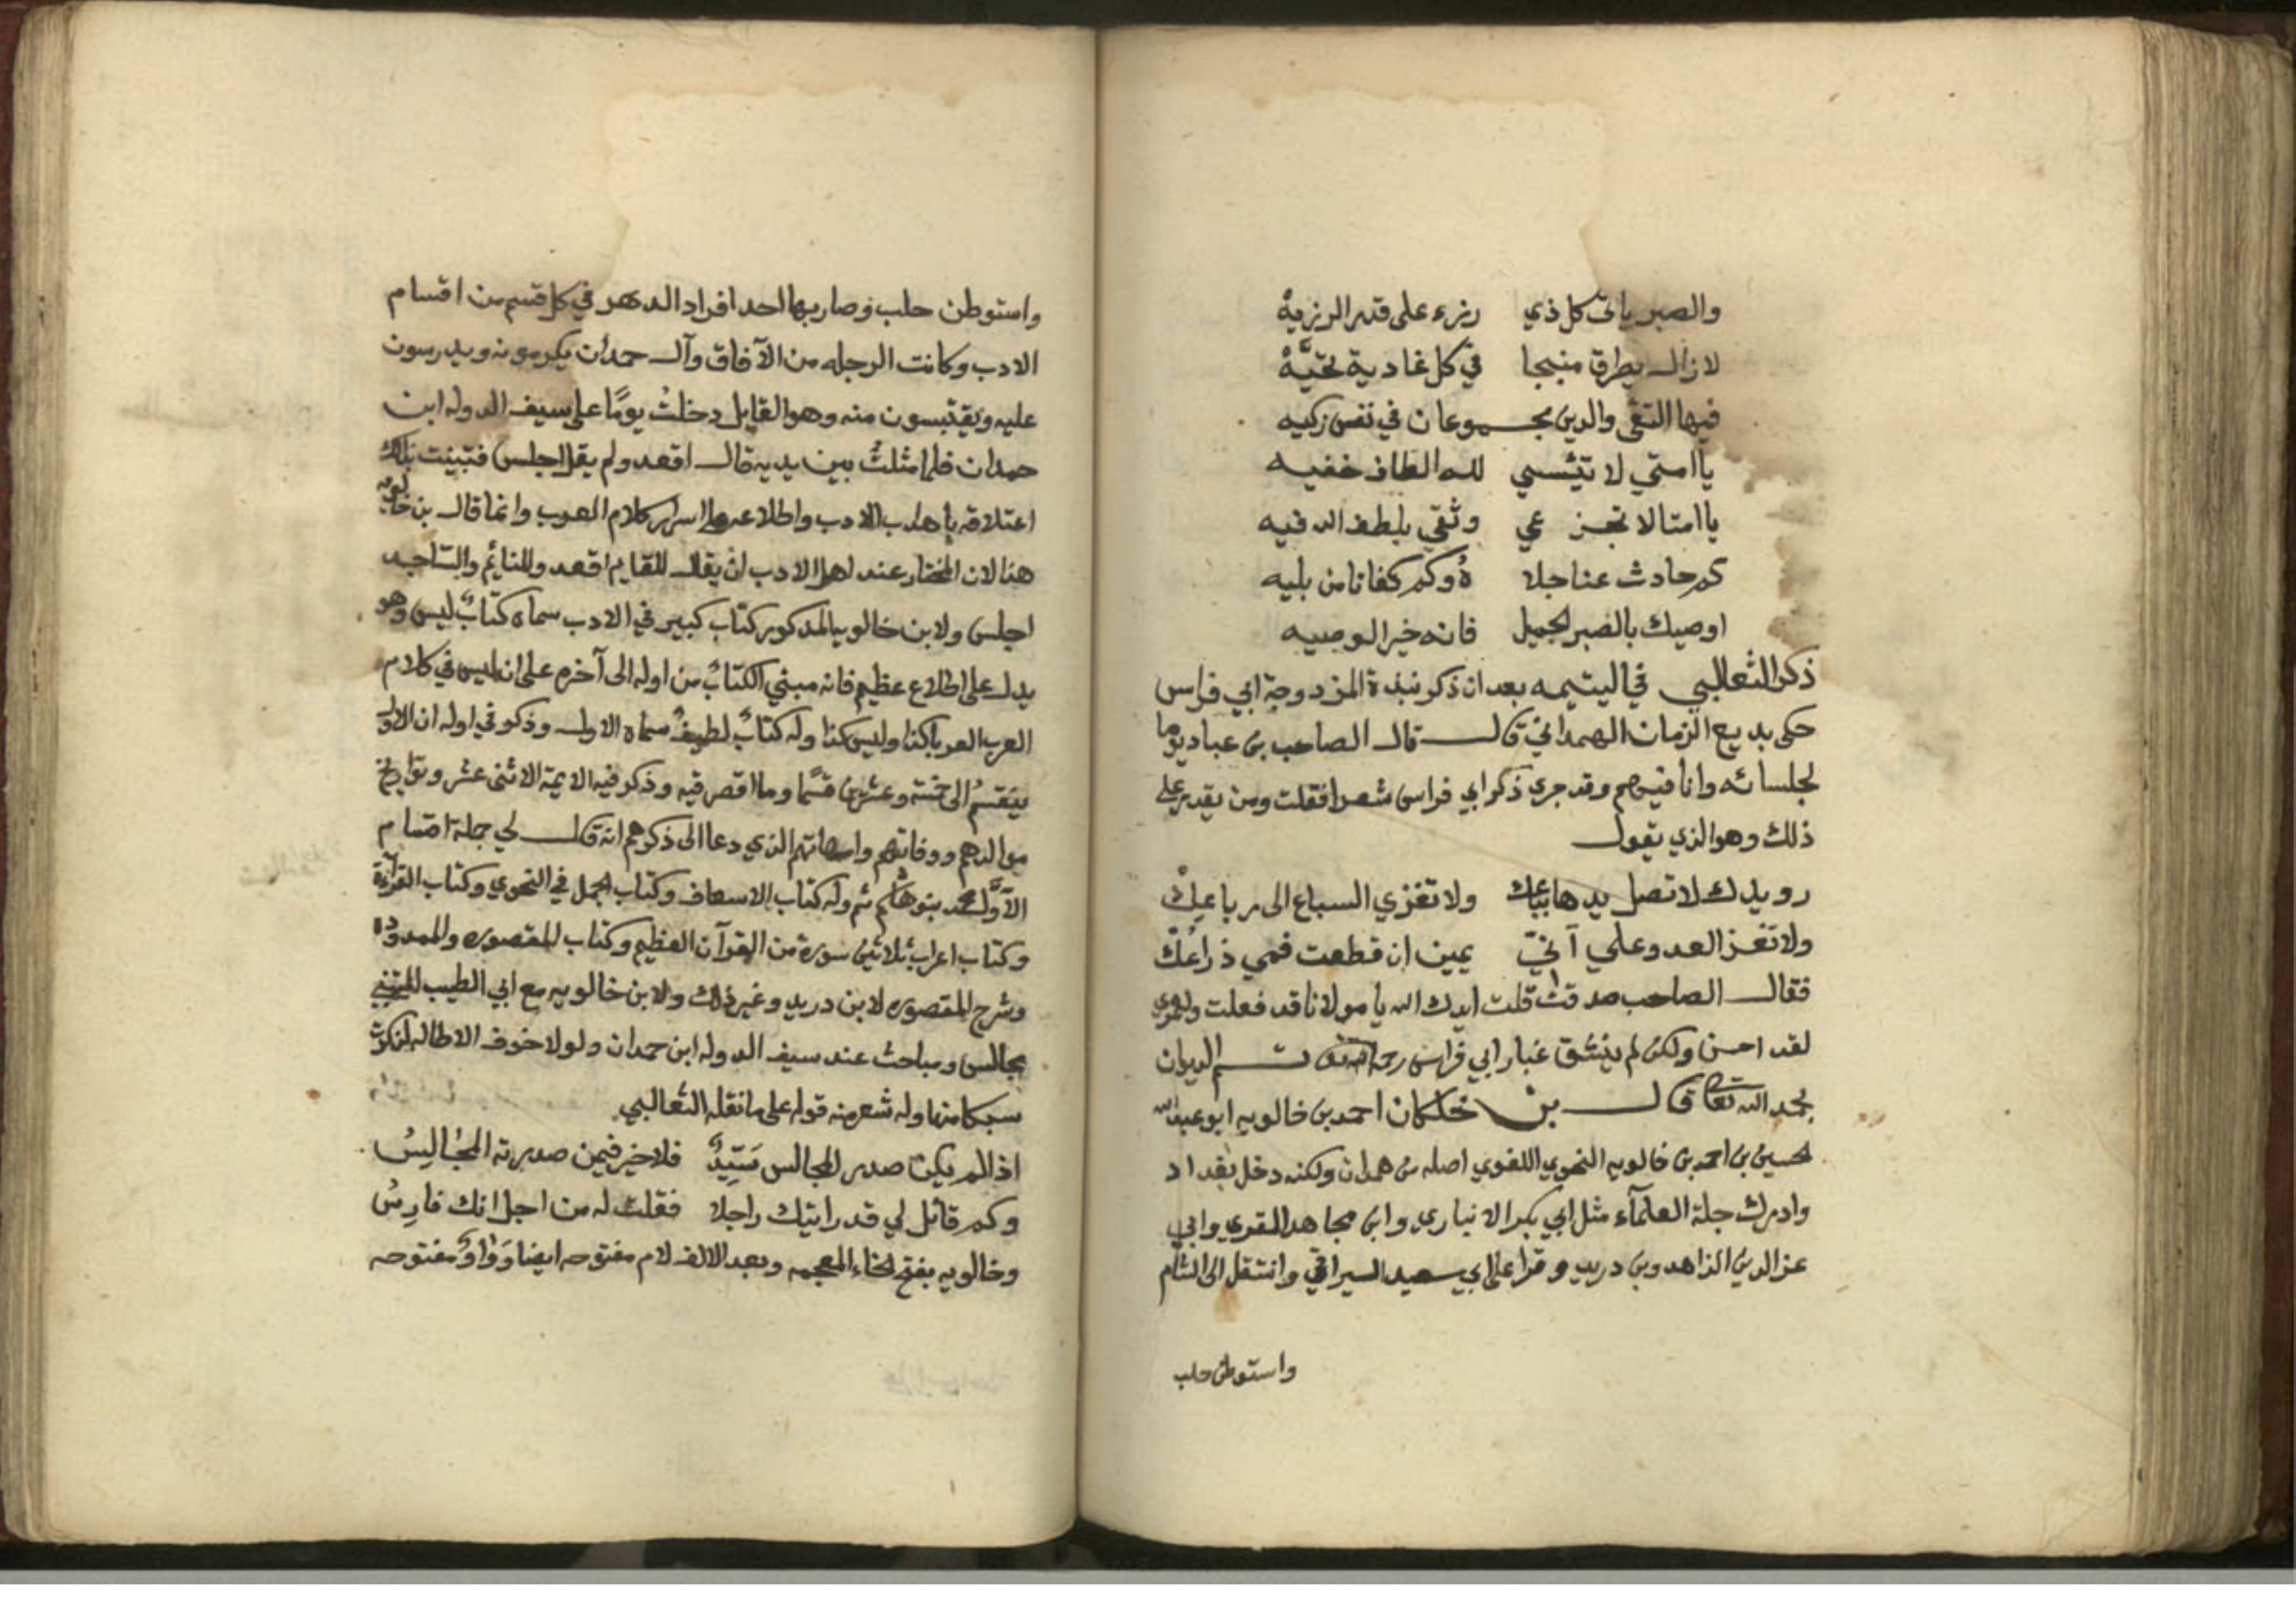 والصبر ياتي كل ذي رزء على قدر الرزية
لازال يطرق منبجا في كل غادية تحيّة
فيها التقى والدين مجموعان في نفس زكيه
يا امتي لا تيئسي لله الطاف خفيه
يا امتا لا تجزعي وثقي بلطف الله فيه
كم حادث عنا جلاه وكم كفانا من بليه
اوصيك بالصبر الجميل فانه خير الوصيه
ذكر الثعالبي في اليتيمه بعد ان ذكر نبذة المزدوجة ابي فراس
حكى بديع الزمان الهمداني قال قال الصاحب بن عباد يوما
لجلسائه وانا فيهم وقد جري ذكر ابي فراس شعرا فقلت ومن يقدر على
ذلك وهو الذي يقول
رويدك لا تصل يدها بباعك ولا تغزي السباع الى رباعك
ولا تغز العدو علي آنيّ يمين ان قطعت فمي ذراعك
فقال الصاحب صدقت قلت ايدك الله يا مولانا قد فعلت ولعمري
لقد احسن ولكن لم ينشق غبار ابي فراس رحمه الله تعالى تم الديوان
بحمد الله تعالى قال بن خلكان احمد بن خالويه ابو عبدالله
لحسين بن احمد بن خالويه النحوي اللغوي اصله من همدان ولكنه دخل بغداد
وادرك جلة العلمآء مثل ابي بكر الانباري وابن مجاهد المقري وابي
عز الدين الزاهد وبن دريد وقرا على ابي سعيد السيرافي وانتقل الى الشام
واستوطن حلب
واستوطن حلب وصار بها احد افراد الدهر في كل قسم من اقسام
الادب وكانت الرحله من الآفاق وآل حمدان يكرمونه ويدرسون
عليه ويقتبسون منه وهو القايل دخلت يومًا على سيف الدوله ابن
حمدان فلما مثلت بين يديه قال اقعد ولم يقل اجلس فتبينت بذلك
اعتلاقه باهداب الادب واطلاعه على اسرار كلام العرب وانما قال بن خالويه
هذا لان المختار عند اهل الادب ان يقال للقايم اقعد وللنائم والساجد
اجلس ولابن خالويه المذكور كتاب كبير في الادب سماه كتاب ليس وهو
يدل على اطلاع عظيم فانه مبني الكتاب من اوله الى آخره على انه ليس في كلام
العرب العربا كذا وليس كذا وله كتابٌ لطيفٌ سماه الاول وذكر في اوله ان الاول
ينقسم الى خمسة وعشرين قسمًا وما اقصر فيه وذكر فيه الايمة الاثنى عشر وتواريخ
موالدهم ووفاتهم وامهاتهم الذي دعا الى ذكرهم انه قال لي جملة اقسام
الآول محمد بنو هاشم ثم وله كتاب الاسعاف وكتاب الجمل في النحوي وكتاب القرآءة
وكتاب اعراب ثلاثين سورة من القرآن العظيم وكتاب المقصوره والممدوده
وشرح المقصوره لابن دريد وغير ذلك ولابن خالويه مع ابي الطيب المتنبي
مجالس ومباحث عند سيف الدوله ابن حمدان ولولا خوف الاطاله لذكرت
منها وله شعر منه قوله على ما نقله الثعالبي
اذا لم يكن صدر المجالس سَيِّدٌ فلا خير فيمن صدرته المجالسُ
وكم قائل لي قد رايتك راجلا فقلت له من اجل انك فارسُ
وخالويه بفتح الخاء المعجمه وبعد الالف لام مفتوحه ايضا وواو مفتوحه